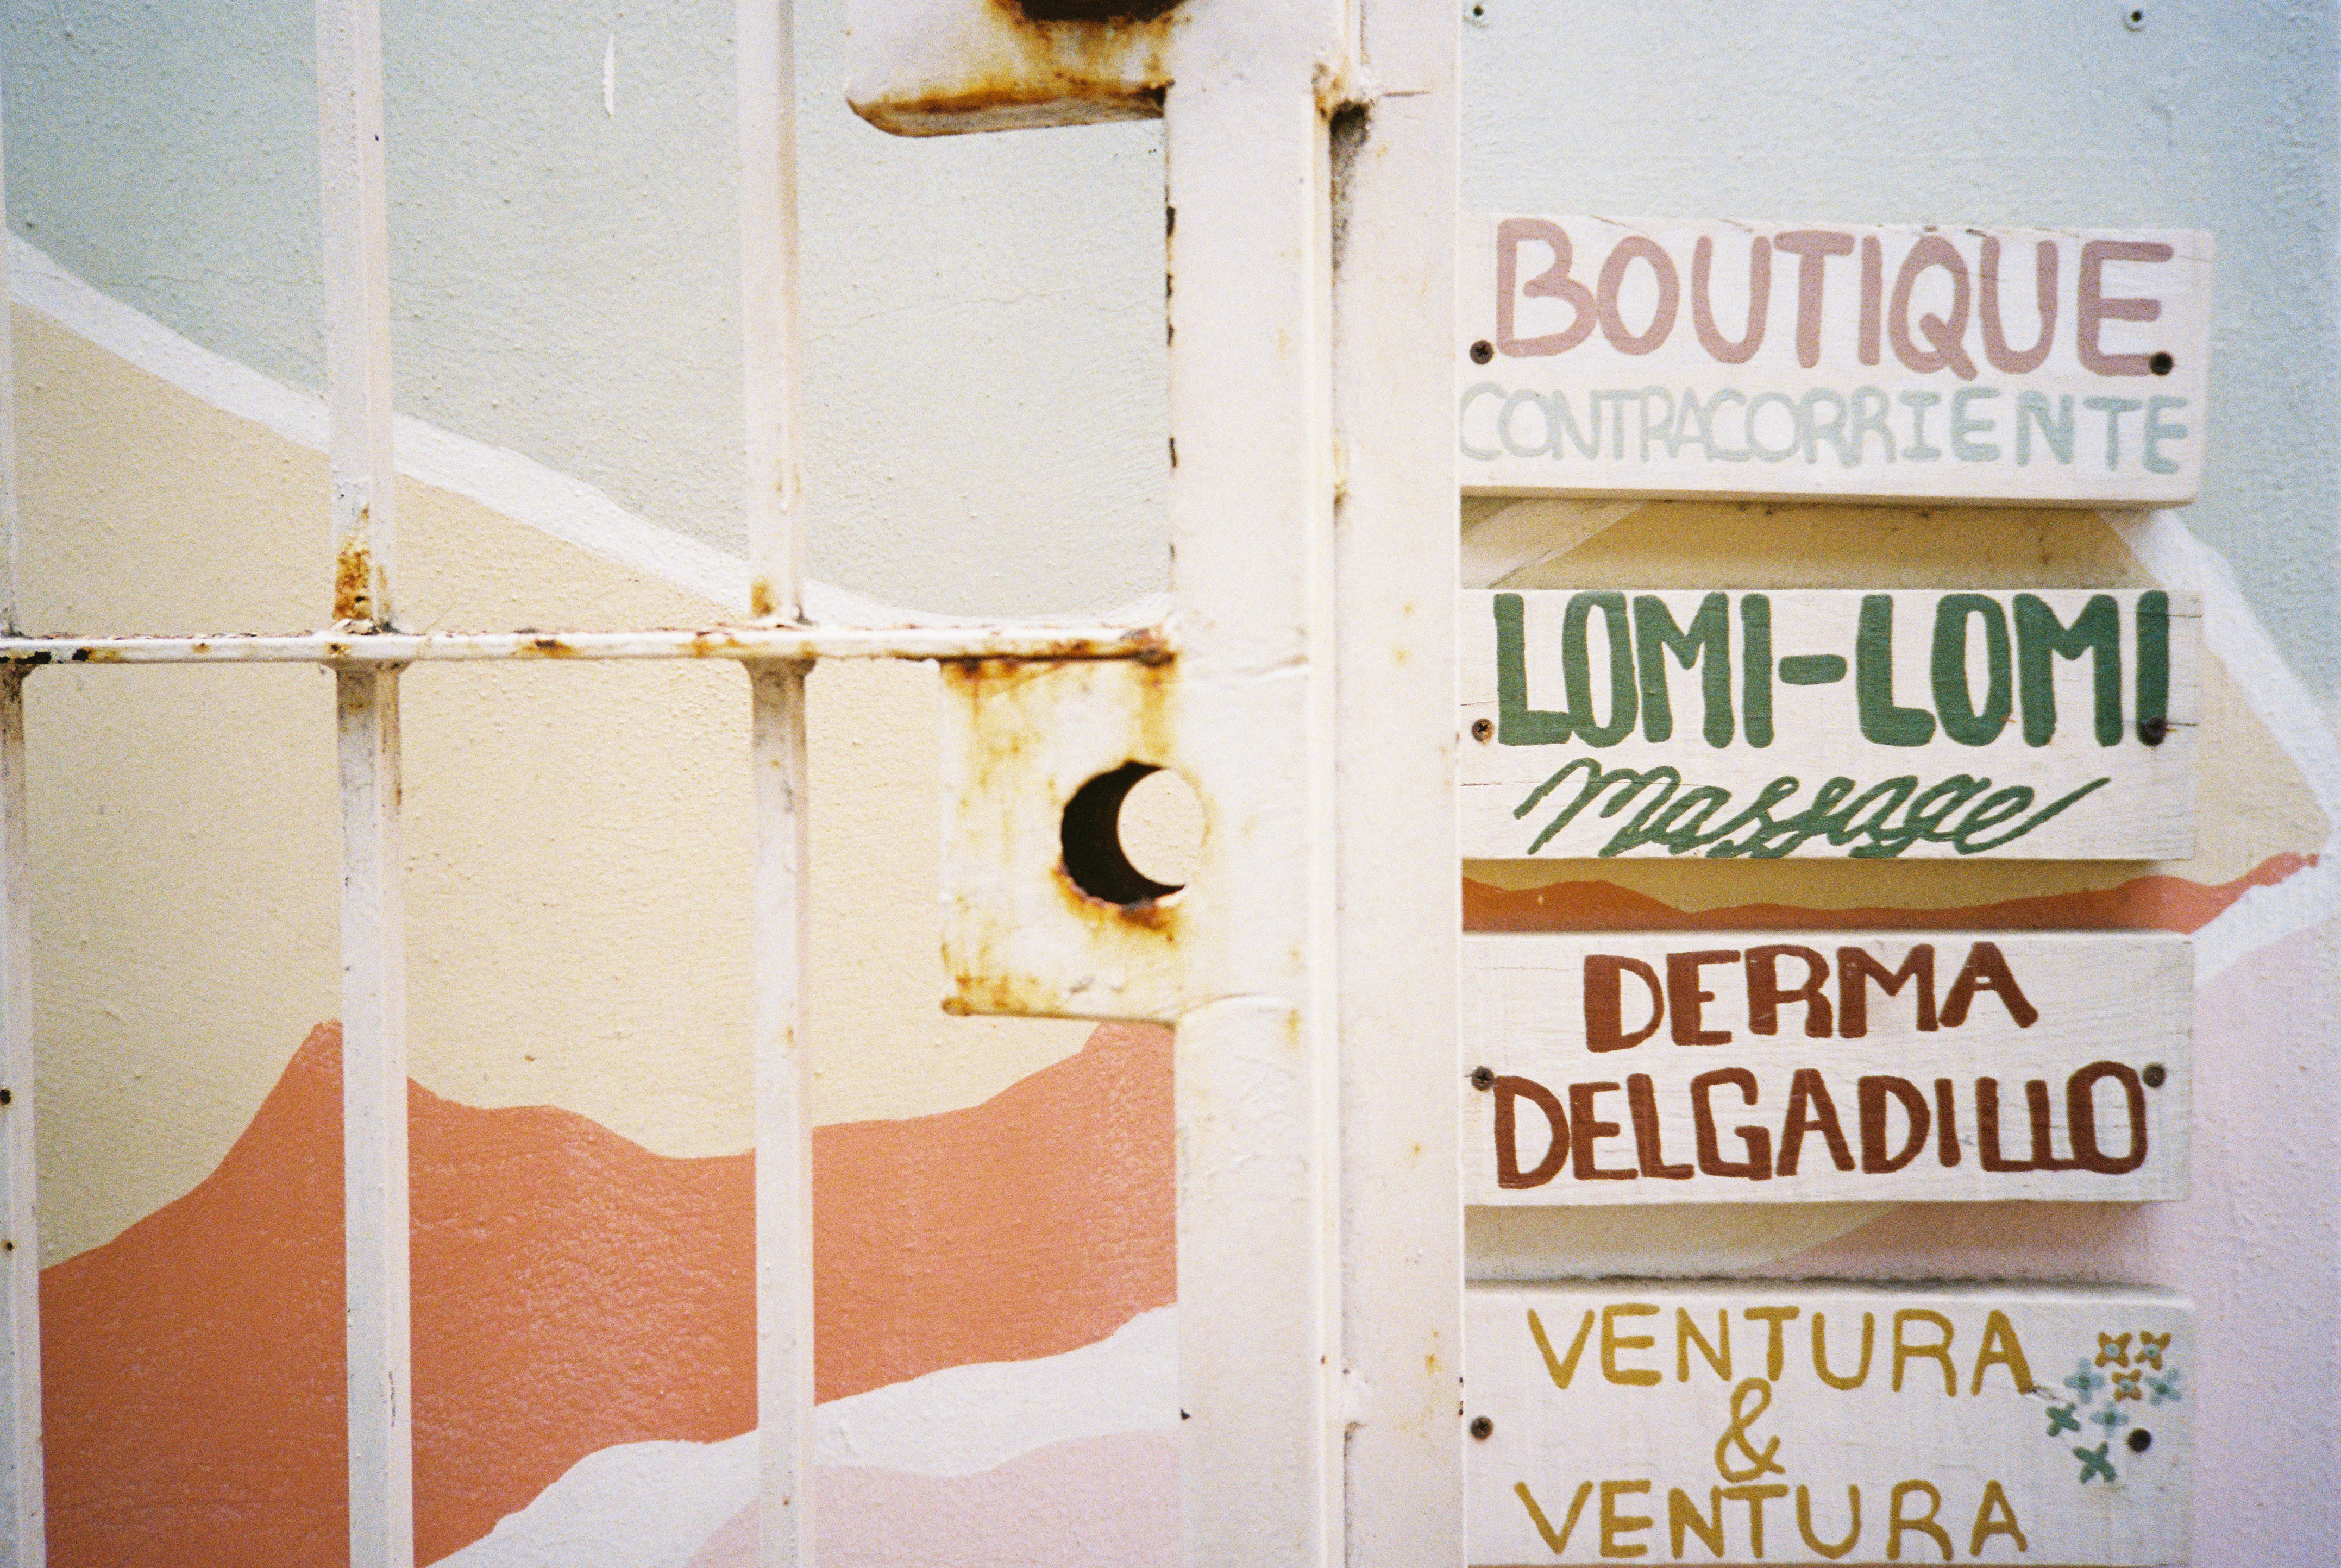 BOUTIQUE
CONTRACORRIENTE
LOMI-LOMI
Massage
DERMA
DELGADILLO
VENTURA
&
VENTURA